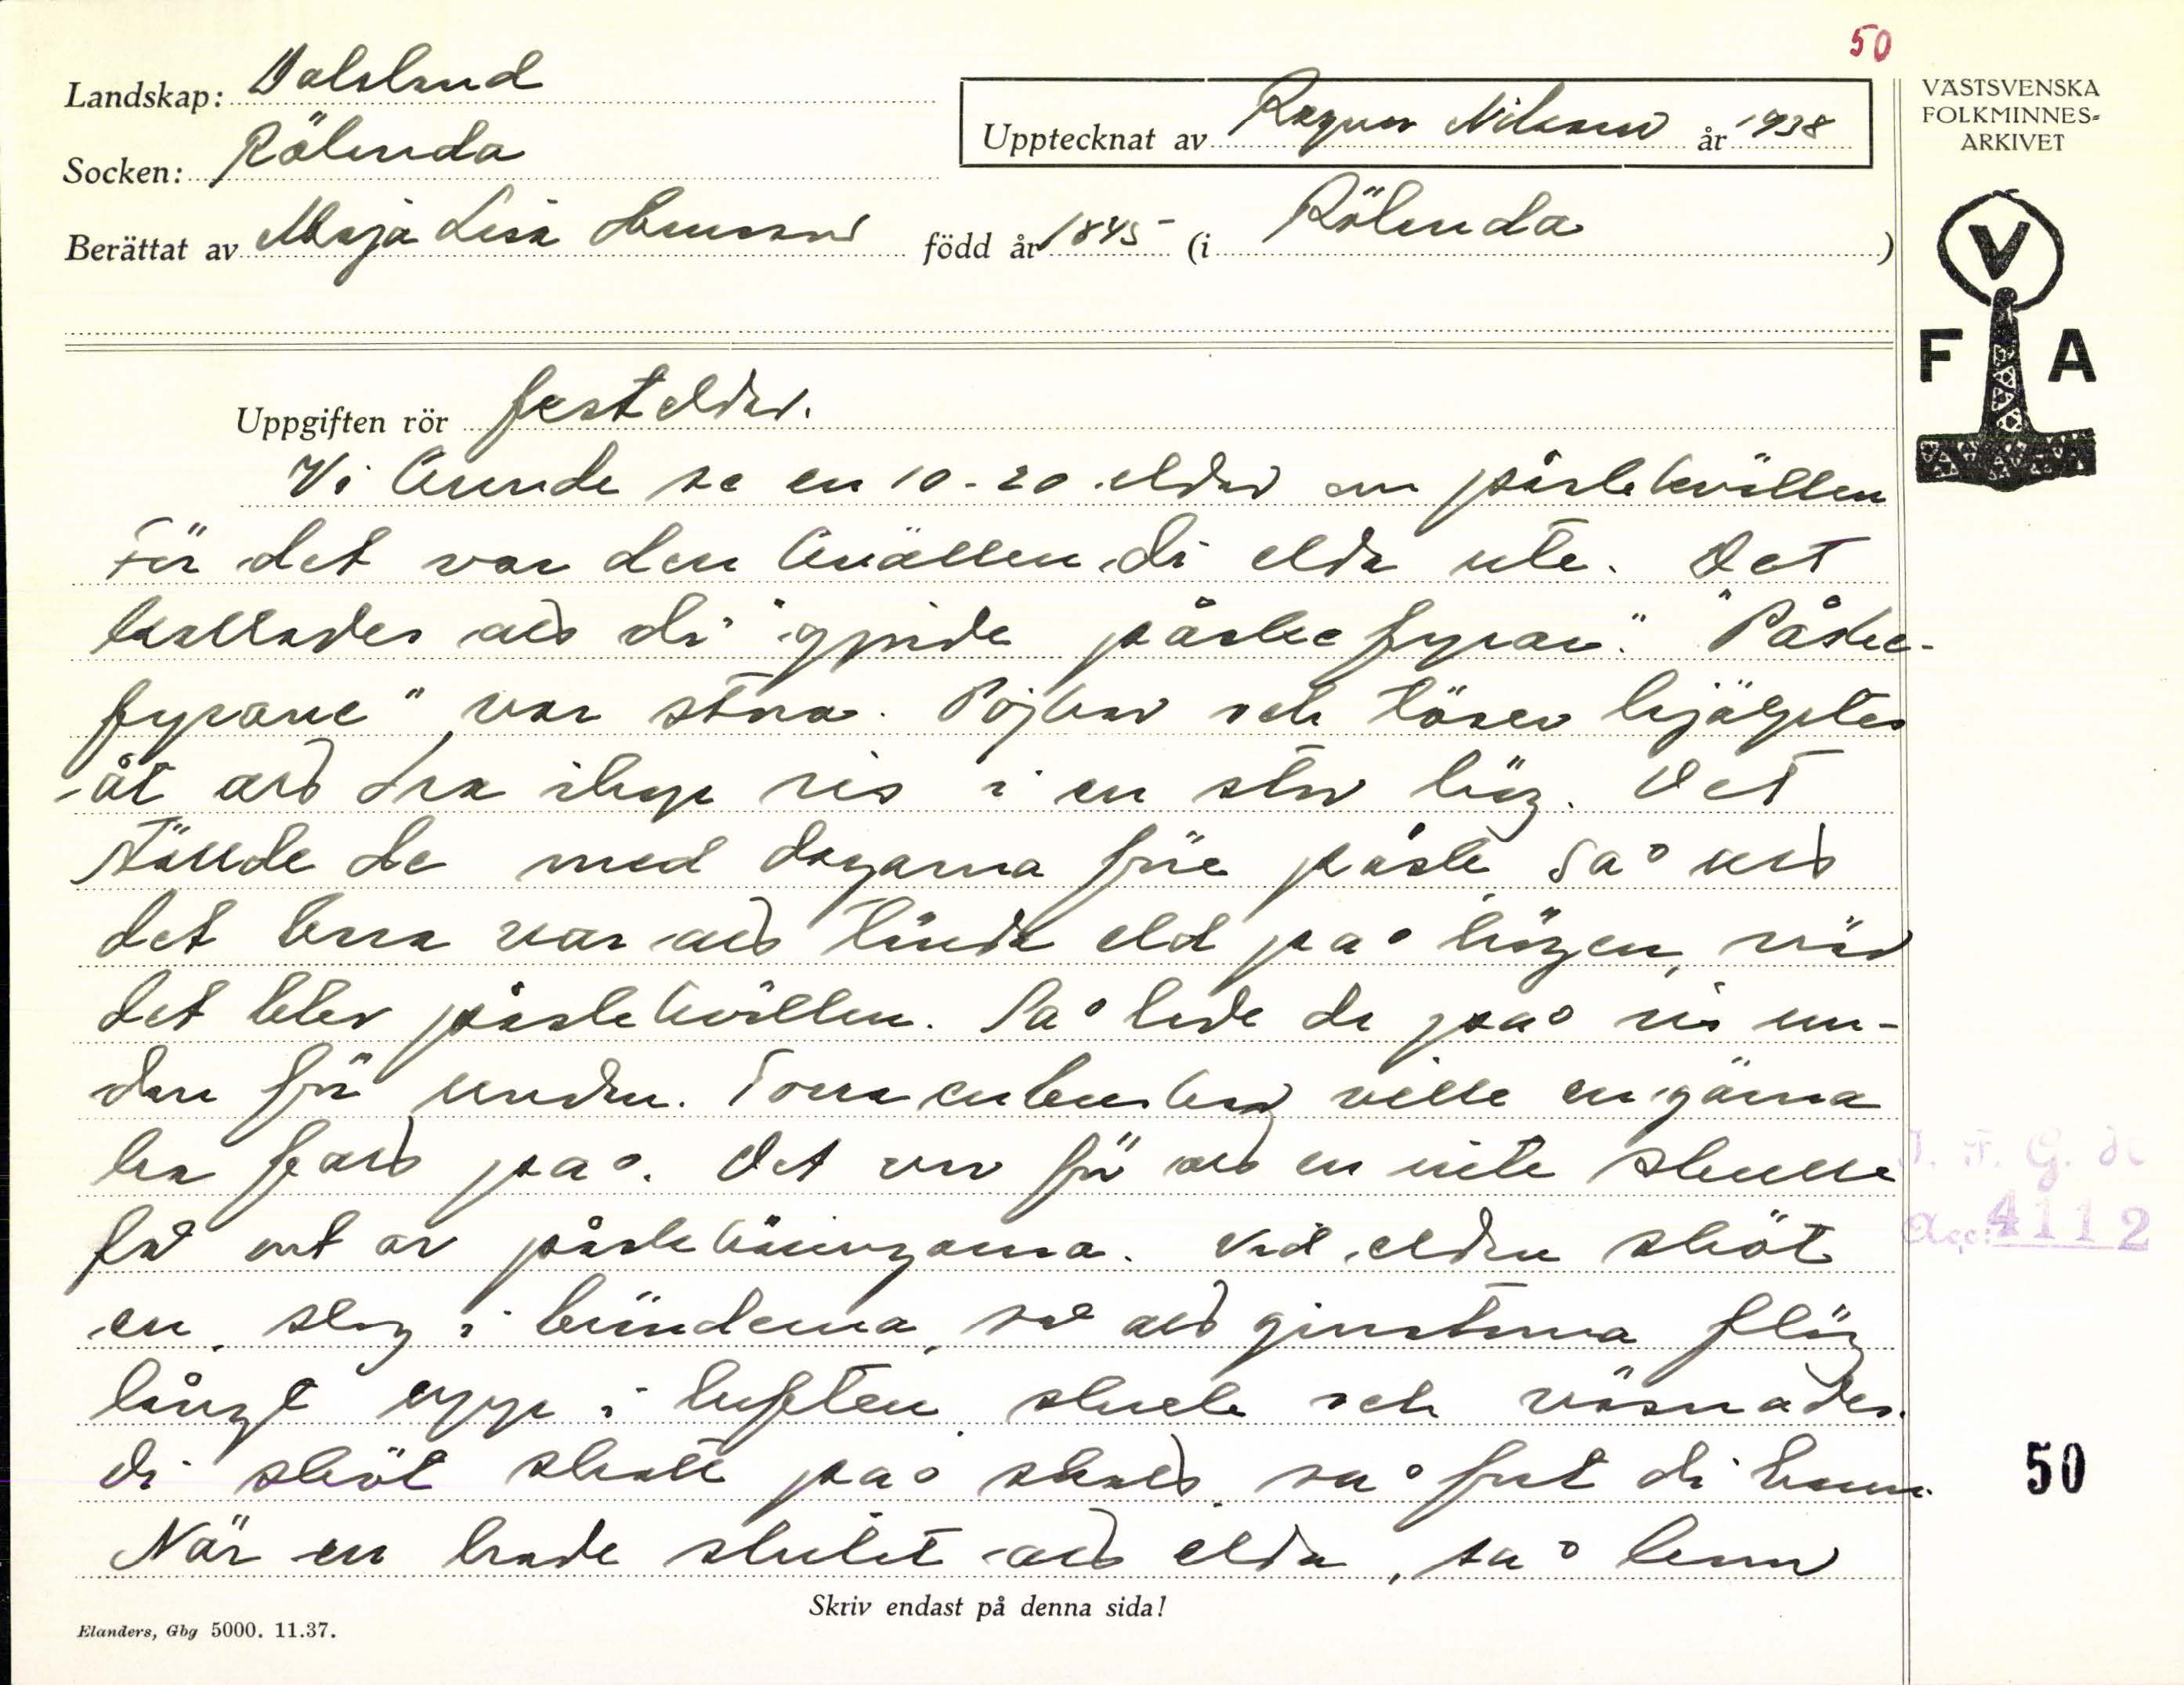 50
Landskap: Dalsland
Socken: Rölanda
Upptecknat av Ragnar Nilsson år 1938
Berättat av Maja Lisa Hansson född år 1845 (i Rölanda)
VÄSTSVENSKA
FOLKMINNES=
ARKIVET
V
F A
Uppgiften rör festeldar.
Vi kunde se en 10-20 eldar om påskekvällen
För det var den kvällen di elda ute. Det
kallades att di "gjorde påskefyrar". "Påske-
fyrane" var stora. Pojkar och töser hjälptes
åt att dra ihop ris i en stor hög. Det
ställde de med dagarna före påsk, så att
det bara var att tända eld på högen, när
det blev påskekvällen. Så lade de på ris un-
dan för undan. Tomma enbuskar ville en gärna
ha fatt på. Det var för att en inte skulle
få ont av påskkäringarna. Vid elden sköt
en, slog i bränderna, så att gnistorna flög
långt upp i luften, skrek och väsnades.
Di sköt skott på skott, så fort di hann.
När en hade slutat att elda, så kom
J. F. G. H
Acc: 4112
50
Skriv endast på denna sida!
Elanders, Gbg 5000. 11.37.